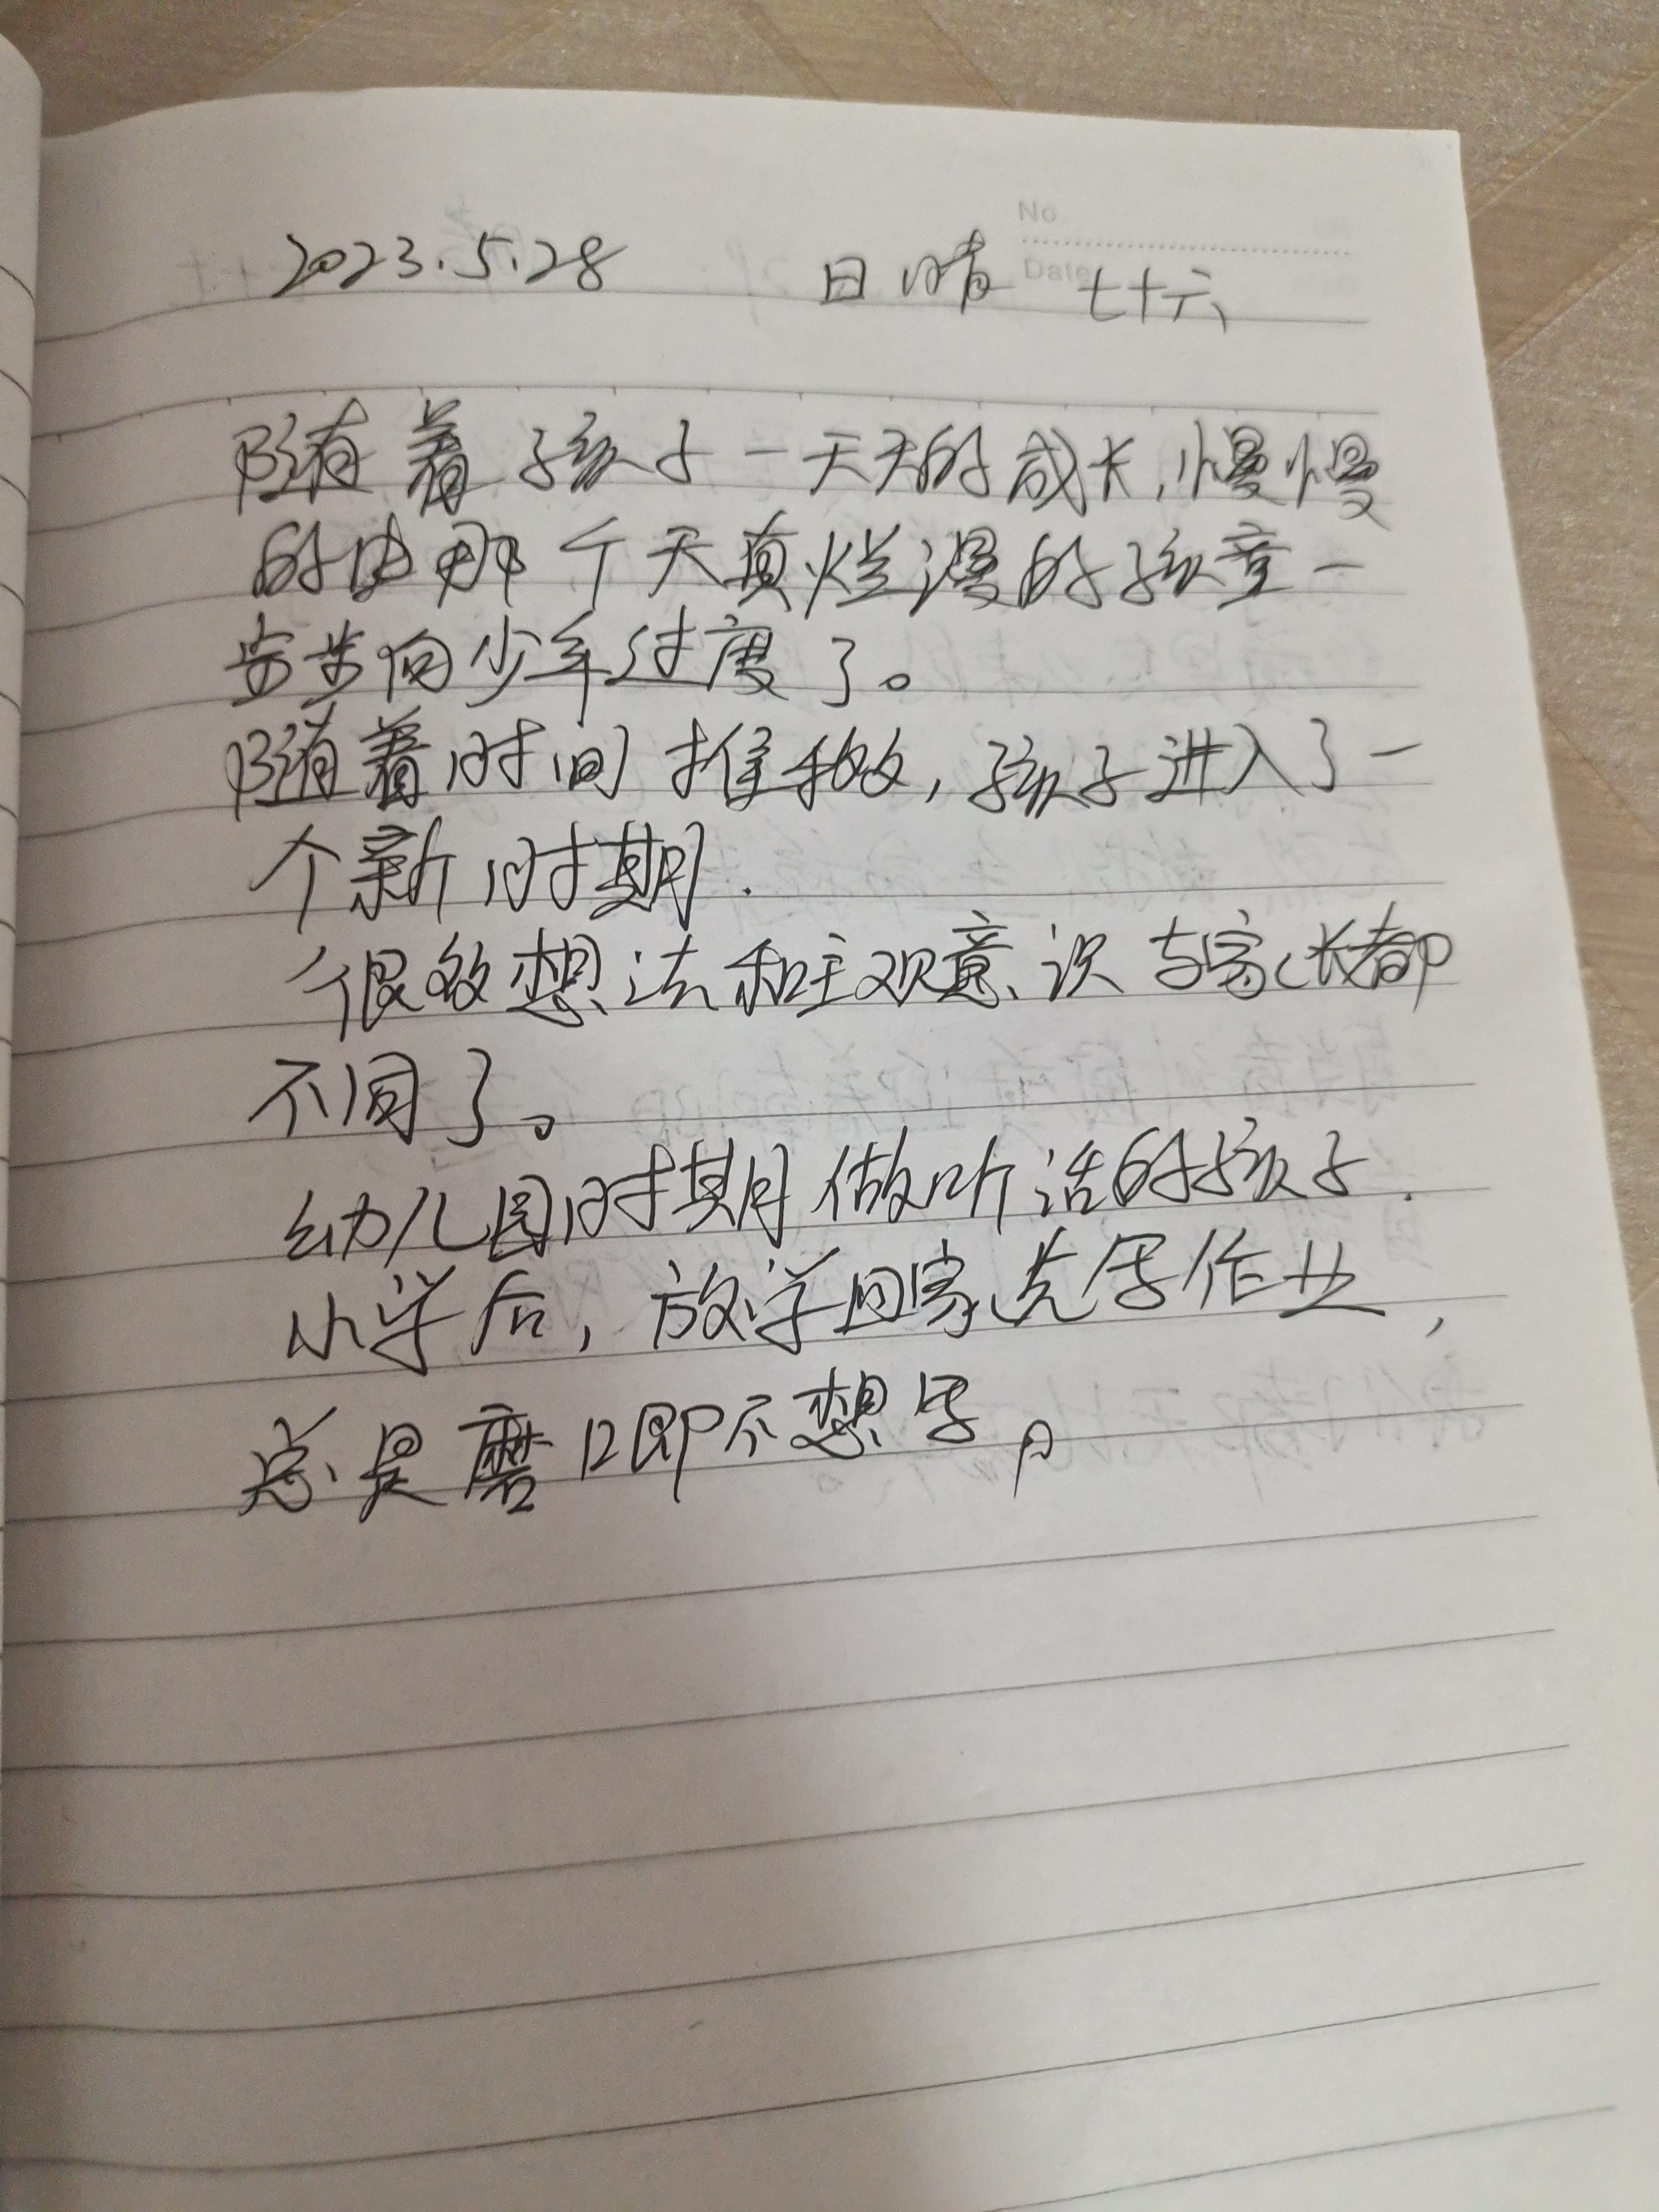 No
2023.5.28 日晴 Date 七十六
随着孩子一天天的成长,慢慢
的由那个天真烂漫的孩童一
步步向少年过度了。
随着时间推移,孩子进入了一
个新时期.
很多想法和主观意识与家长都
不同了。
幼儿园时期做听话的孩子.
小学后,放学回家先写作业,
总是磨叽不想写。